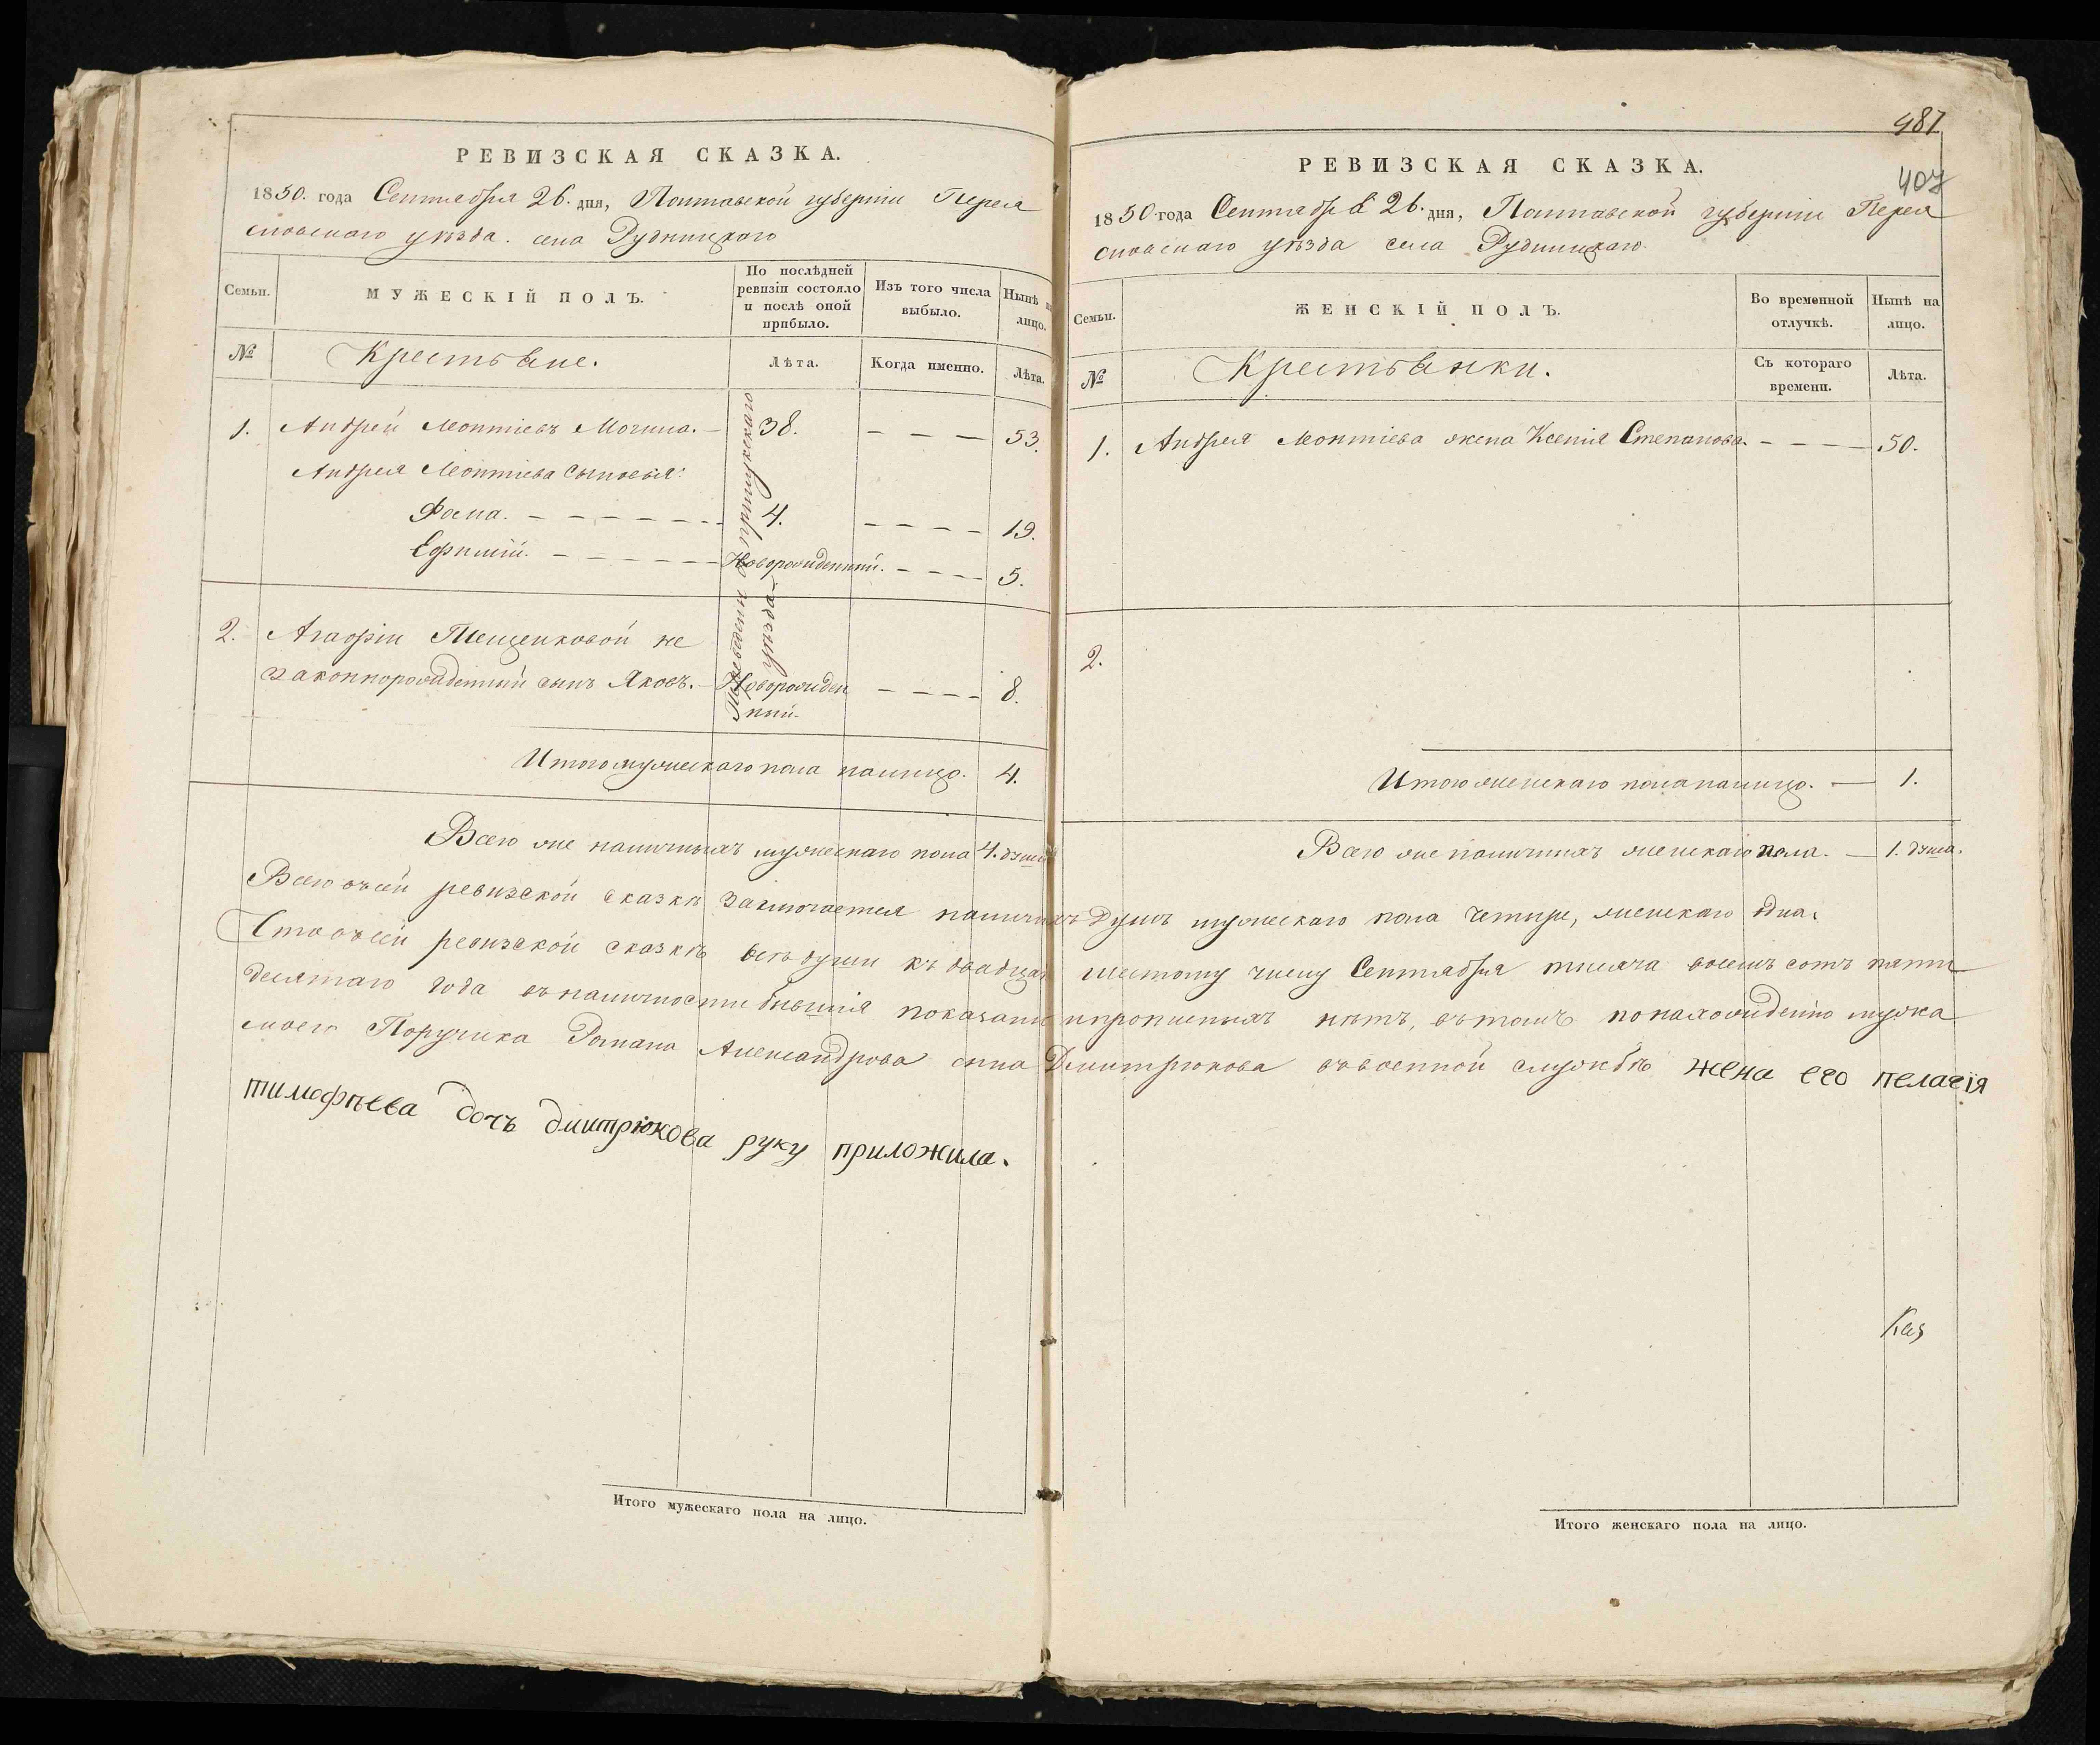 РЕВИЗСКАЯ СКАЗКА.
1850. года Сентября 26. дня, Полтавской губерніи Перея
славскаго уѣзда. села Рудницкаго
Семьи.
МУЖЕСКІЙ ПОЛЪ.
По послѣдней ревизіи состояло и послѣ оной прибыло.
Изъ того числа выбыло.
Нынѣ на лицо.
№
Крестьяне.
Лѣта.
Когда именно.
Лѣта.
1. Андрей Леонтіевъ Могила. — 38. — — — 53.
Андрея Леонтіева сыновья:
Фома. — 4. — — — — 19.
Ефимій. — Новорожденный. — — — 5.
2. Агафіи Тещенковой не
законнорожденный сынъ Яковъ. — Новорожден — — — — 8.
ный
Переведены прилуцкаго
уѣзда
Итого мужескаго пола налицо. 4.
Всего же наличныхъ мужескаго пола 4. души
РЕВИЗСКАЯ СКАЗКА.
487
407
1850 года Сентября 26. дня, Полтавской губерніи Перея
славскаго уѣзда села Рудницкаго.
Семьи.
ЖЕНСКІЙ ПОЛЪ.
Во временной отлучкѣ.
Нынѣ на лицо.
№
Крестьянки.
Съ котораго времени.
Лѣта.
1. Андрея Леонтіева жена Ксенія Степанова. — — — 50.
2.
Итого женскаго пола налицо. — 1.
Всего же наличныхъ женскаго пола. — 1. душа.
Всего въ сей ревизской сказкѣ заключается наличныхъ душъ мужескаго пола четыре, женскаго одна.
Что въ сей ревизской сказкѣ всѣ души къ двадцать шестому числу Сентября тысяча восемь сотъ пяти
десятаго года въ наличности бывшія показаны и прописныхъ нѣтъ, въ томъ по нахожденію мужа
моего Поручика Романа Александрова сына Дмитрюкова въ военной службѣ жена его пелагія
тимофѣева дочъ дмитрюкова руку приложила.
Итого мужескаго пола на лицо.
Итого женскаго пола на лицо.